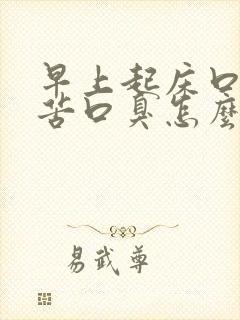 早上起床口
苦口臭怎麽
易武尊